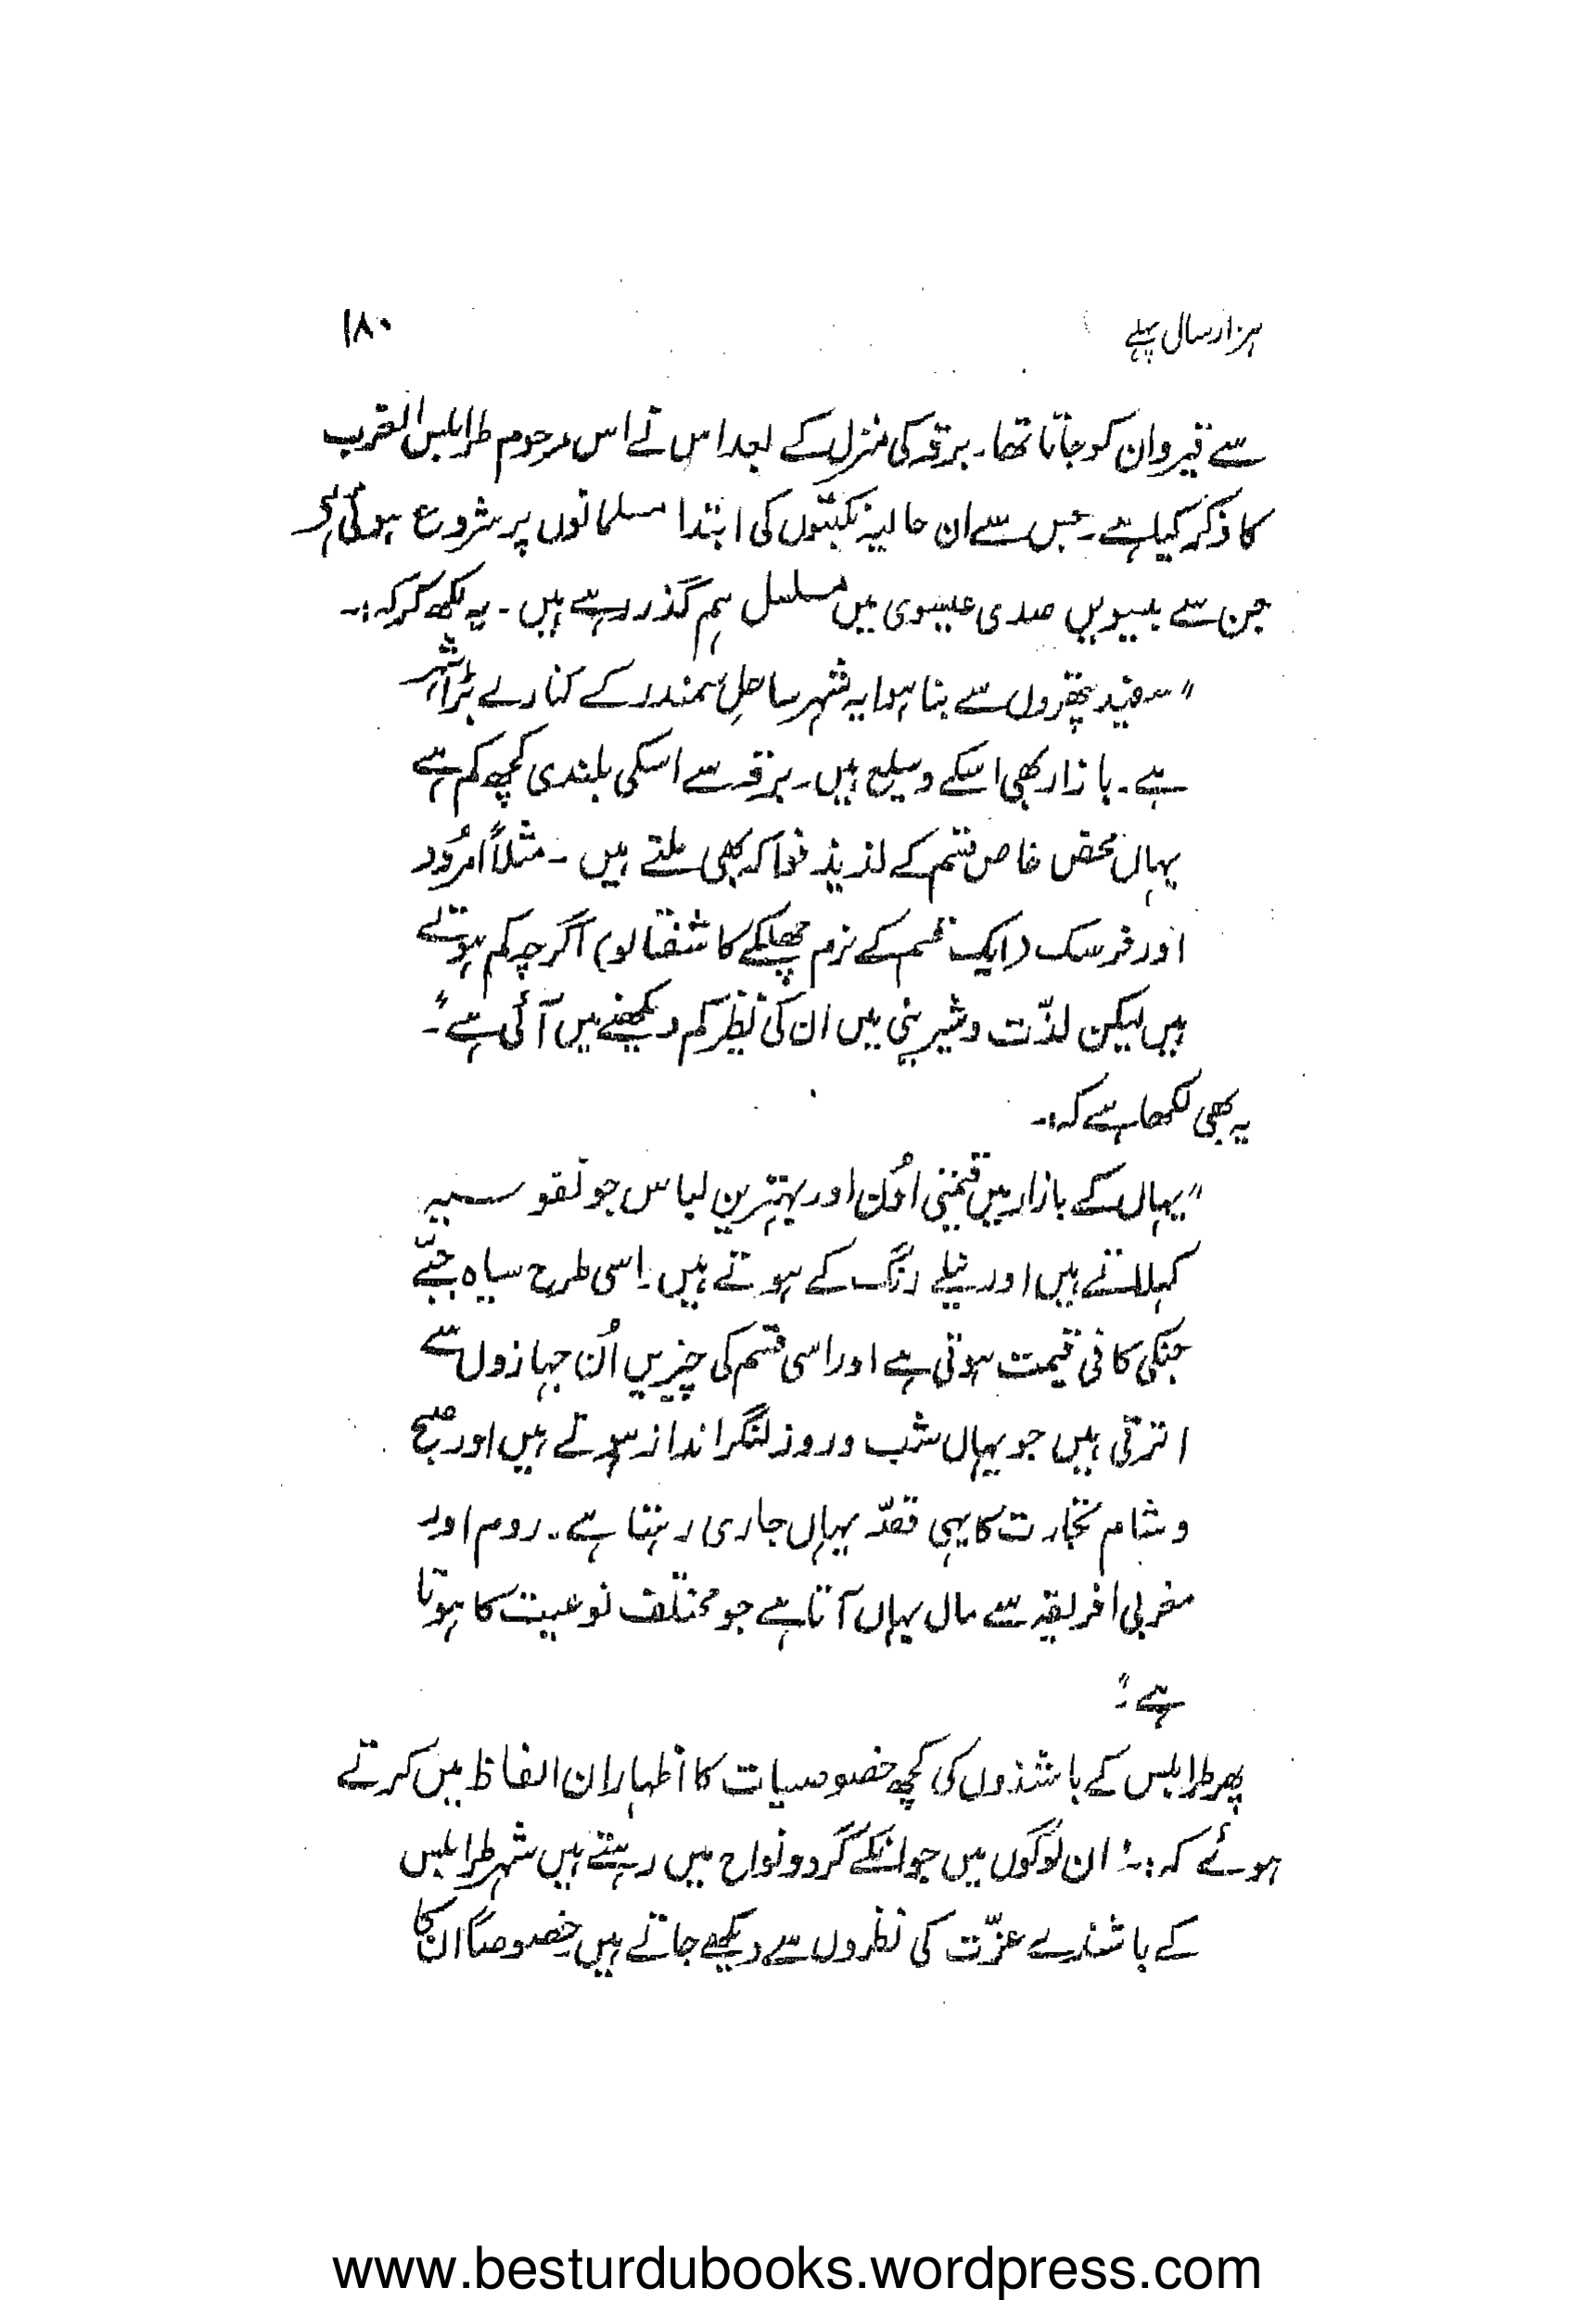 ہزار سال پہلے ۱۸۰
سے قیروان کو جاتا تھا۔ برقہ کی منزل کے بعد اس نے اس مرحوم طرابلس الغرب
کا ذکر کیا ہے۔ جس سے ان حالیہ نکبتوں کی ابتدا مسلمانوں پر شروع ہوئی ہے
جن سے بیسویں صدی عیسوی میں مسلسل ہم گذر رہے ہیں۔ یہ لکھ کر کہ :۔
"سفید پتھروں سے بنا ہوا یہ شہر ساحلِ سمندر کے کنارے بڑا شہر
ہے۔ بازار بھی اسکے وسیع ہیں۔ برقہ سے اسکی بلندی کچھ کم ہے
یہاں محض خاص قسم کے لذیذ فواکہ بھی ملتے ہیں ۔ مثلاً امرُود
اور فرسک (ایک قسم کے نرم چھلکے کا شفتالو) اگرچہ کم ہوتے
ہیں لیکن لذّت و شیرینی میں ان کی نظیر کم دیکھنے میں آئی ہے"۔
یہ بھی لکھا ہے کہ :۔
"یہاں کے بازار میں قیمتی اُون اور بہترین لباس جو نفوسیہ
کہلاتے ہیں اور نیلے رنگ کے ہوتے ہیں۔ اسی طرح سیاہ جبّے
جنکی کافی قیمت ہوتی ہے اور اسی قسم کی چیزیں اُن جہازوں سے
اترتی ہیں جو یہاں شب و روز لنگر انداز ہوتے ہیں اور صبح
و شام تجارت کا یہی قصّہ یہاں جاری رہتا ہے۔ روم اور
مغربی افریقہ سے مال یہاں آتا ہے جو مختلف نوعیت کا ہوتا
ہے"۔
پھر طرابلس کے باشندوں کی کچھ خصوصیات کا اظہار ان الفاظ میں کرتے
ہوئے کہ :۔ "ان لوگوں میں جو انکے گرد و نواح میں رہتے ہیں شہر طرابلس
کے باشندے عزّت کی نظروں سے دیکھے جاتے ہیں خصوصاً ان کا
www.besturdubooks.wordpress.com